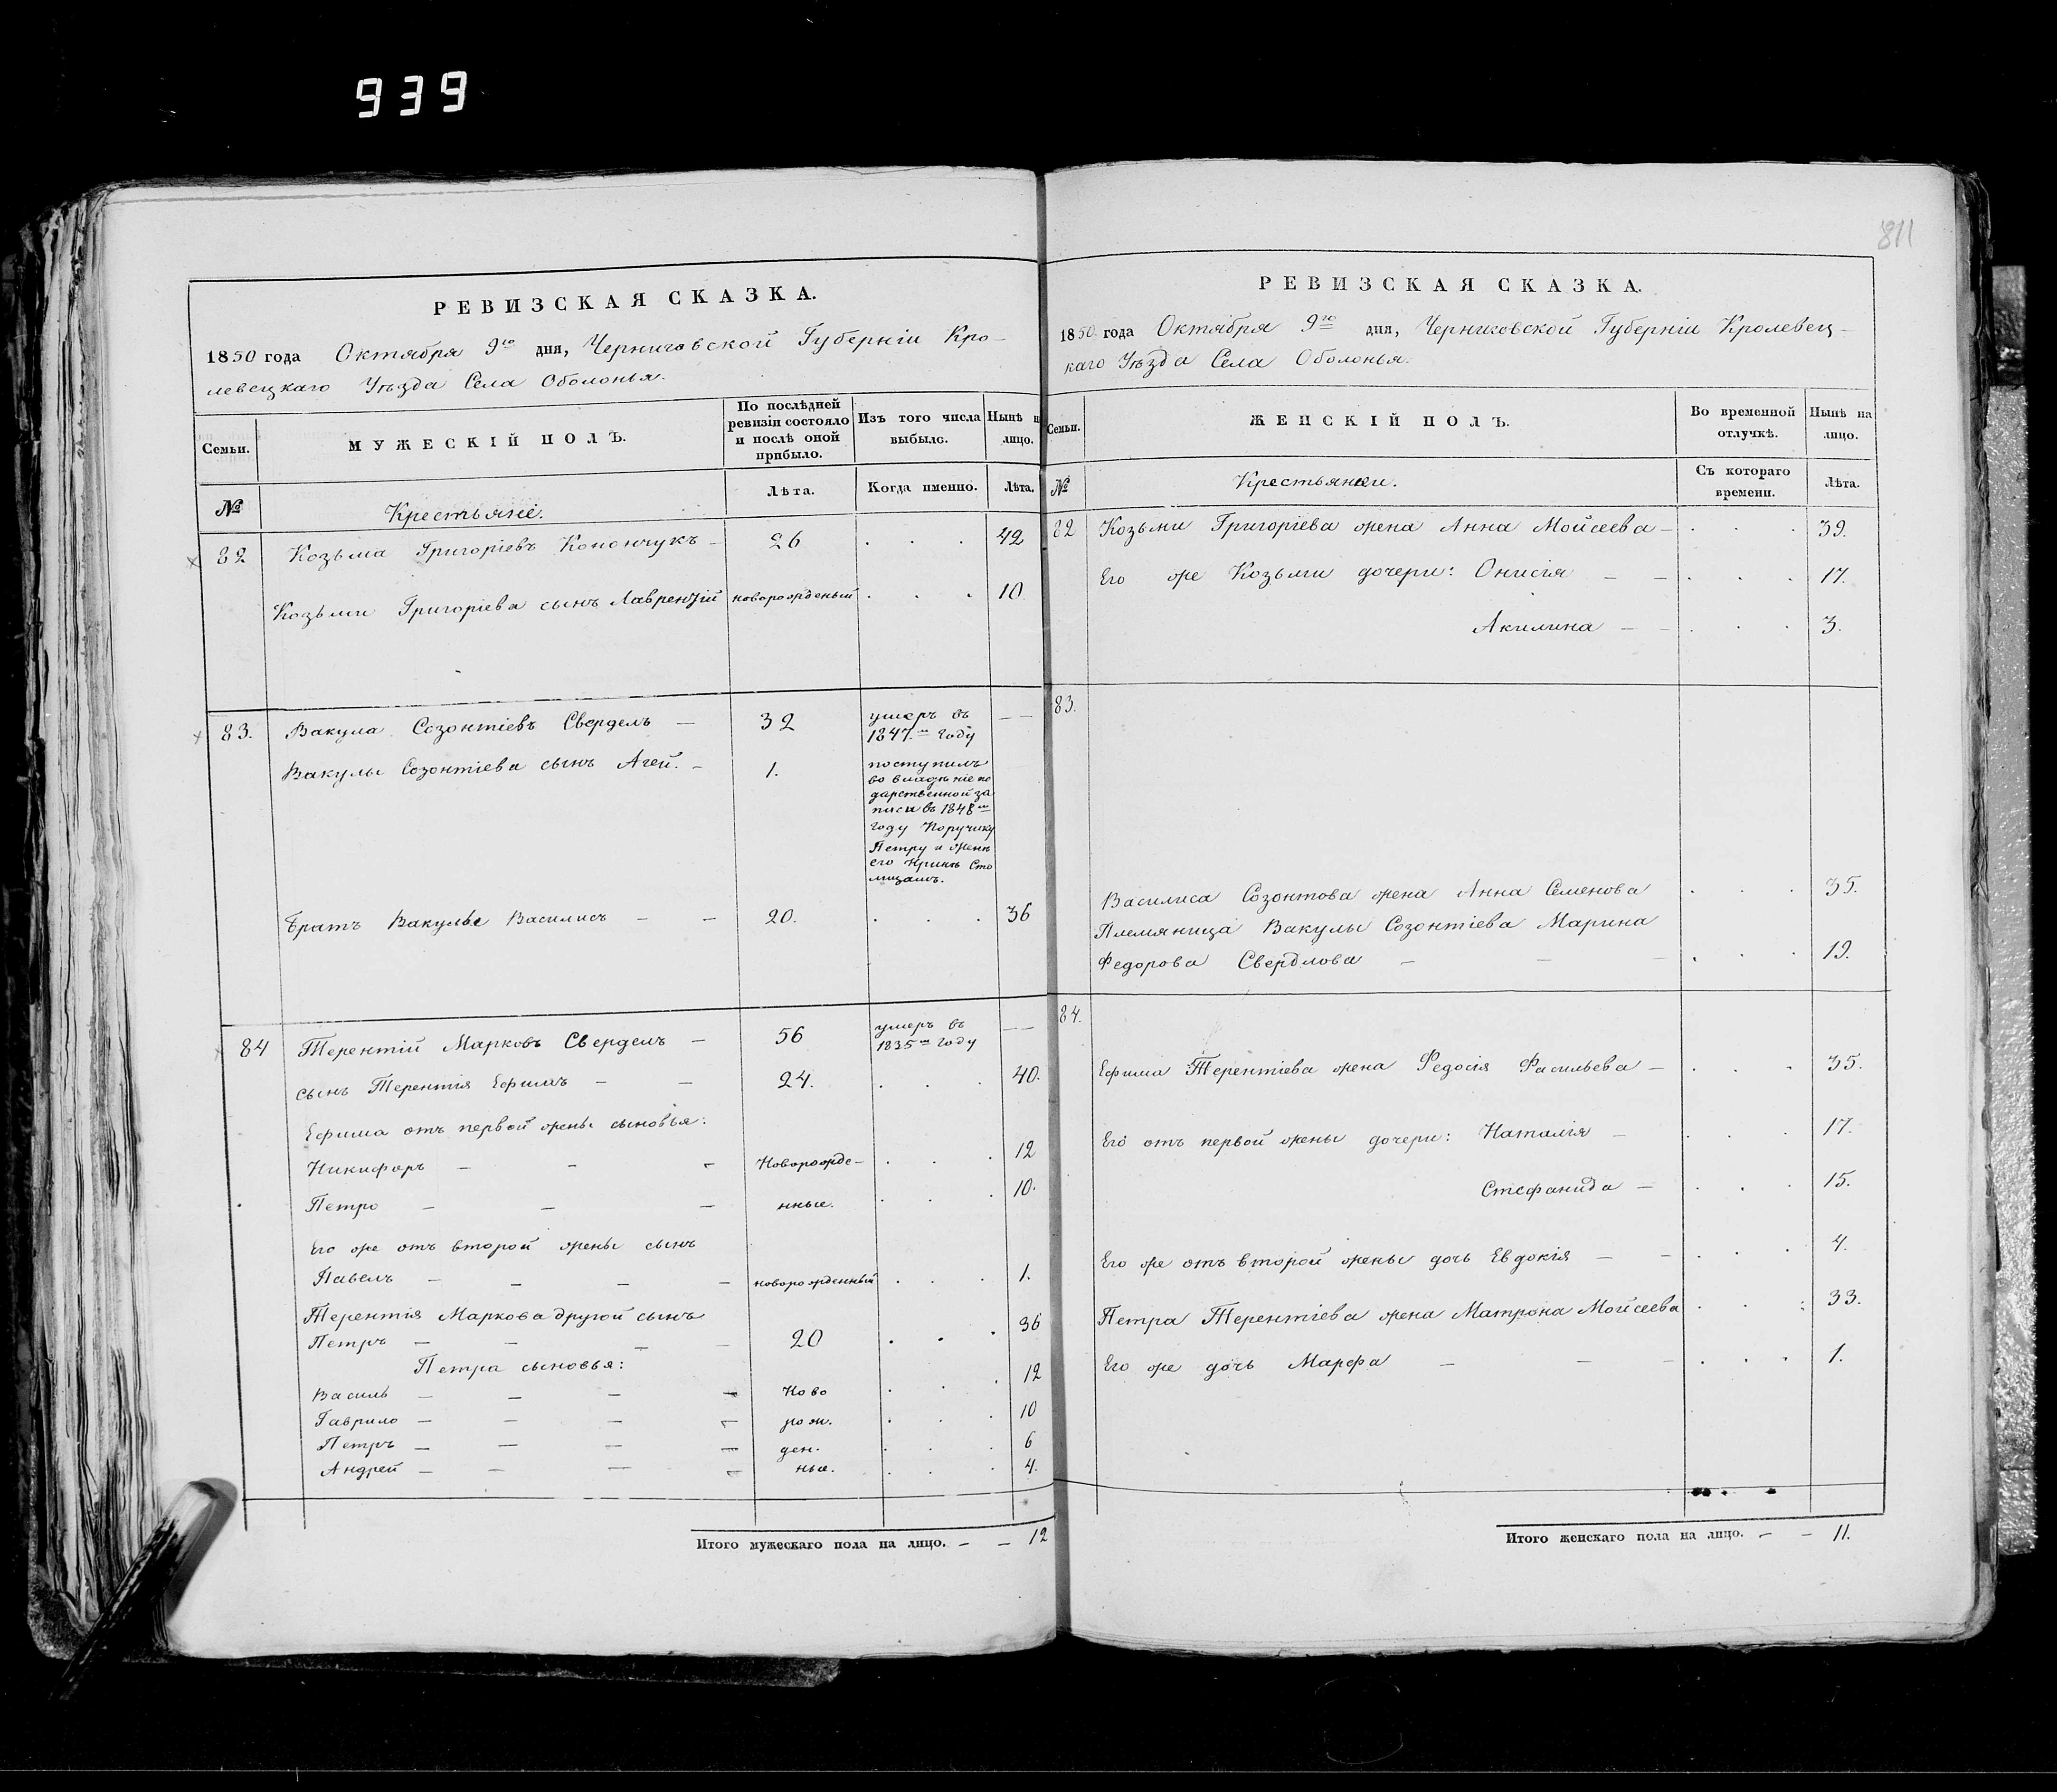 939
811
РЕВИЗСКАЯ СКАЗКА.
1850 года Октября 9го дня, Черниговской Губерніи Кро-
левецкаго Уѣзда Села Оболонья.
Семьи.
МУЖЕСКІЙ ПОЛЪ.
По послѣдней
ревизіи состояло
и послѣ оной
прибыло.
Изъ того числа
выбыло.
Нынѣ н
лицо.
№
Крестьяне.
Лѣта.
Когда именно.
Лѣта.
82 Козьма Григоріевъ Конончукъ - 26 . . . 42
Козьми Григоріева сынъ Лаврензій новорожденый . . . 10
83. Вакула Созонтіевъ Сверделъ — 32 умеръ въ — —
1847.м году
Вакулы Созонтіева сынъ Агей. - 1. поступилъ
во владѣніе по
дарственной за
писи въ 1848м
году Поручику
Петру и женѣ
его Иринѣ Сто
лицамъ.
Братъ Вакулы Василисъ — — 20. . . . 36
84 Терентій Марковъ Свердел — 56 умеръ въ — —
1835м году
сынъ Терентія Ефимъ — — 24. . . . 40.
Ефима отъ первой жены сыновья:
Никифоръ — — — Новорожде- . . . 12
Петро — — — нные. . . . 10.
Его же отъ второй жены сынъ
Павелъ — — — — новорожденный . . . 1.
Терентія Маркова другой сынъ
Петръ — — — — 20 . . . 36
Петра сыновья:
Василь — — — — Ново . . . 12
Гаврило — — — — рож. . . . 10
Петръ — — — — ден. . . . 6
Андрей — — — — ные. . . . 4.
Итого мужескаго пола на лицо. — — 12
РЕВИЗСКАЯ СКАЗКА.
1850. года Октября 9го дня, Черниговской Губерніи Кролевец-
каго Уѣзда Села Оболонья.
Семьи.
ЖЕНСКІЙ ПОЛЪ.
Во временной
отлучкѣ.
Нынѣ на
лицо.
№
Крестьянки.
Съ котораго
времени.
Лѣта.
82 Козьми Григоріева жена Анна Мойсеева — . . . 39.
Его же Козьми дочери: Онисія — — . . . 17.
Акилина — — . . . 3.
83.
Василиса Созонтова жена Анна Семенова . . . 35.
Племяница Вакулы Созонтіева Марина
Федорова Свердлова — — — . . . 19.
84.
Ефима Терентіева жена Федосія Фасильева — . . . 35.
Его отъ первой жены дочери: Наталія — . . . 17.
Стефанида — . . . 15.
Его же отъ второй жены дочь Евдокія — — . . . 4.
Петра Терентіева жена Матрона Мойсеева . . . 33.
Его же дочь Марфа — — — . . . 1.
Итого женскаго пола на лицо. — — 11.